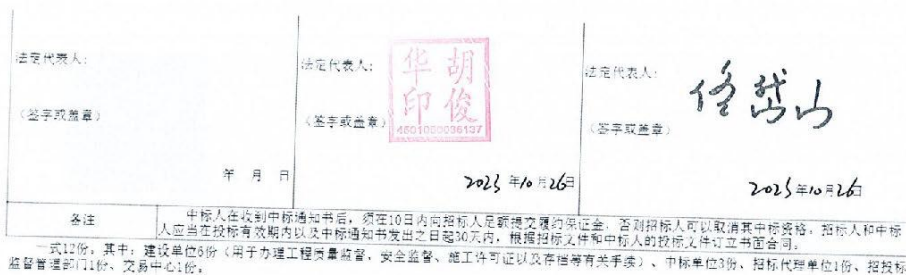 法定代表人：
（签字或盖章）
年 月 日
法定代表人：
胡俊华印
4501000036137
（签字或盖章）
2023年10月26日
法定代表人：
佟岱山
（签字或盖章）
2023年10月26日
备注
中标人在收到中标通知书后，须在10日内向招标人足额提交履约保证金，否则招标人可以取消其中标资格。招标人和中标
人应当在投标有效期内以及中标通知书发出之日起30天内，根据招标文件和中标人的投标文件订立书面合同。
一式12份。其中：建设单位6份（用于办理工程质量监督、安全监督、施工许可证以及存档等有关手续）、中标单位3份、招标代理单位1份、招投标
监督管理部门1份、交易中心1份。